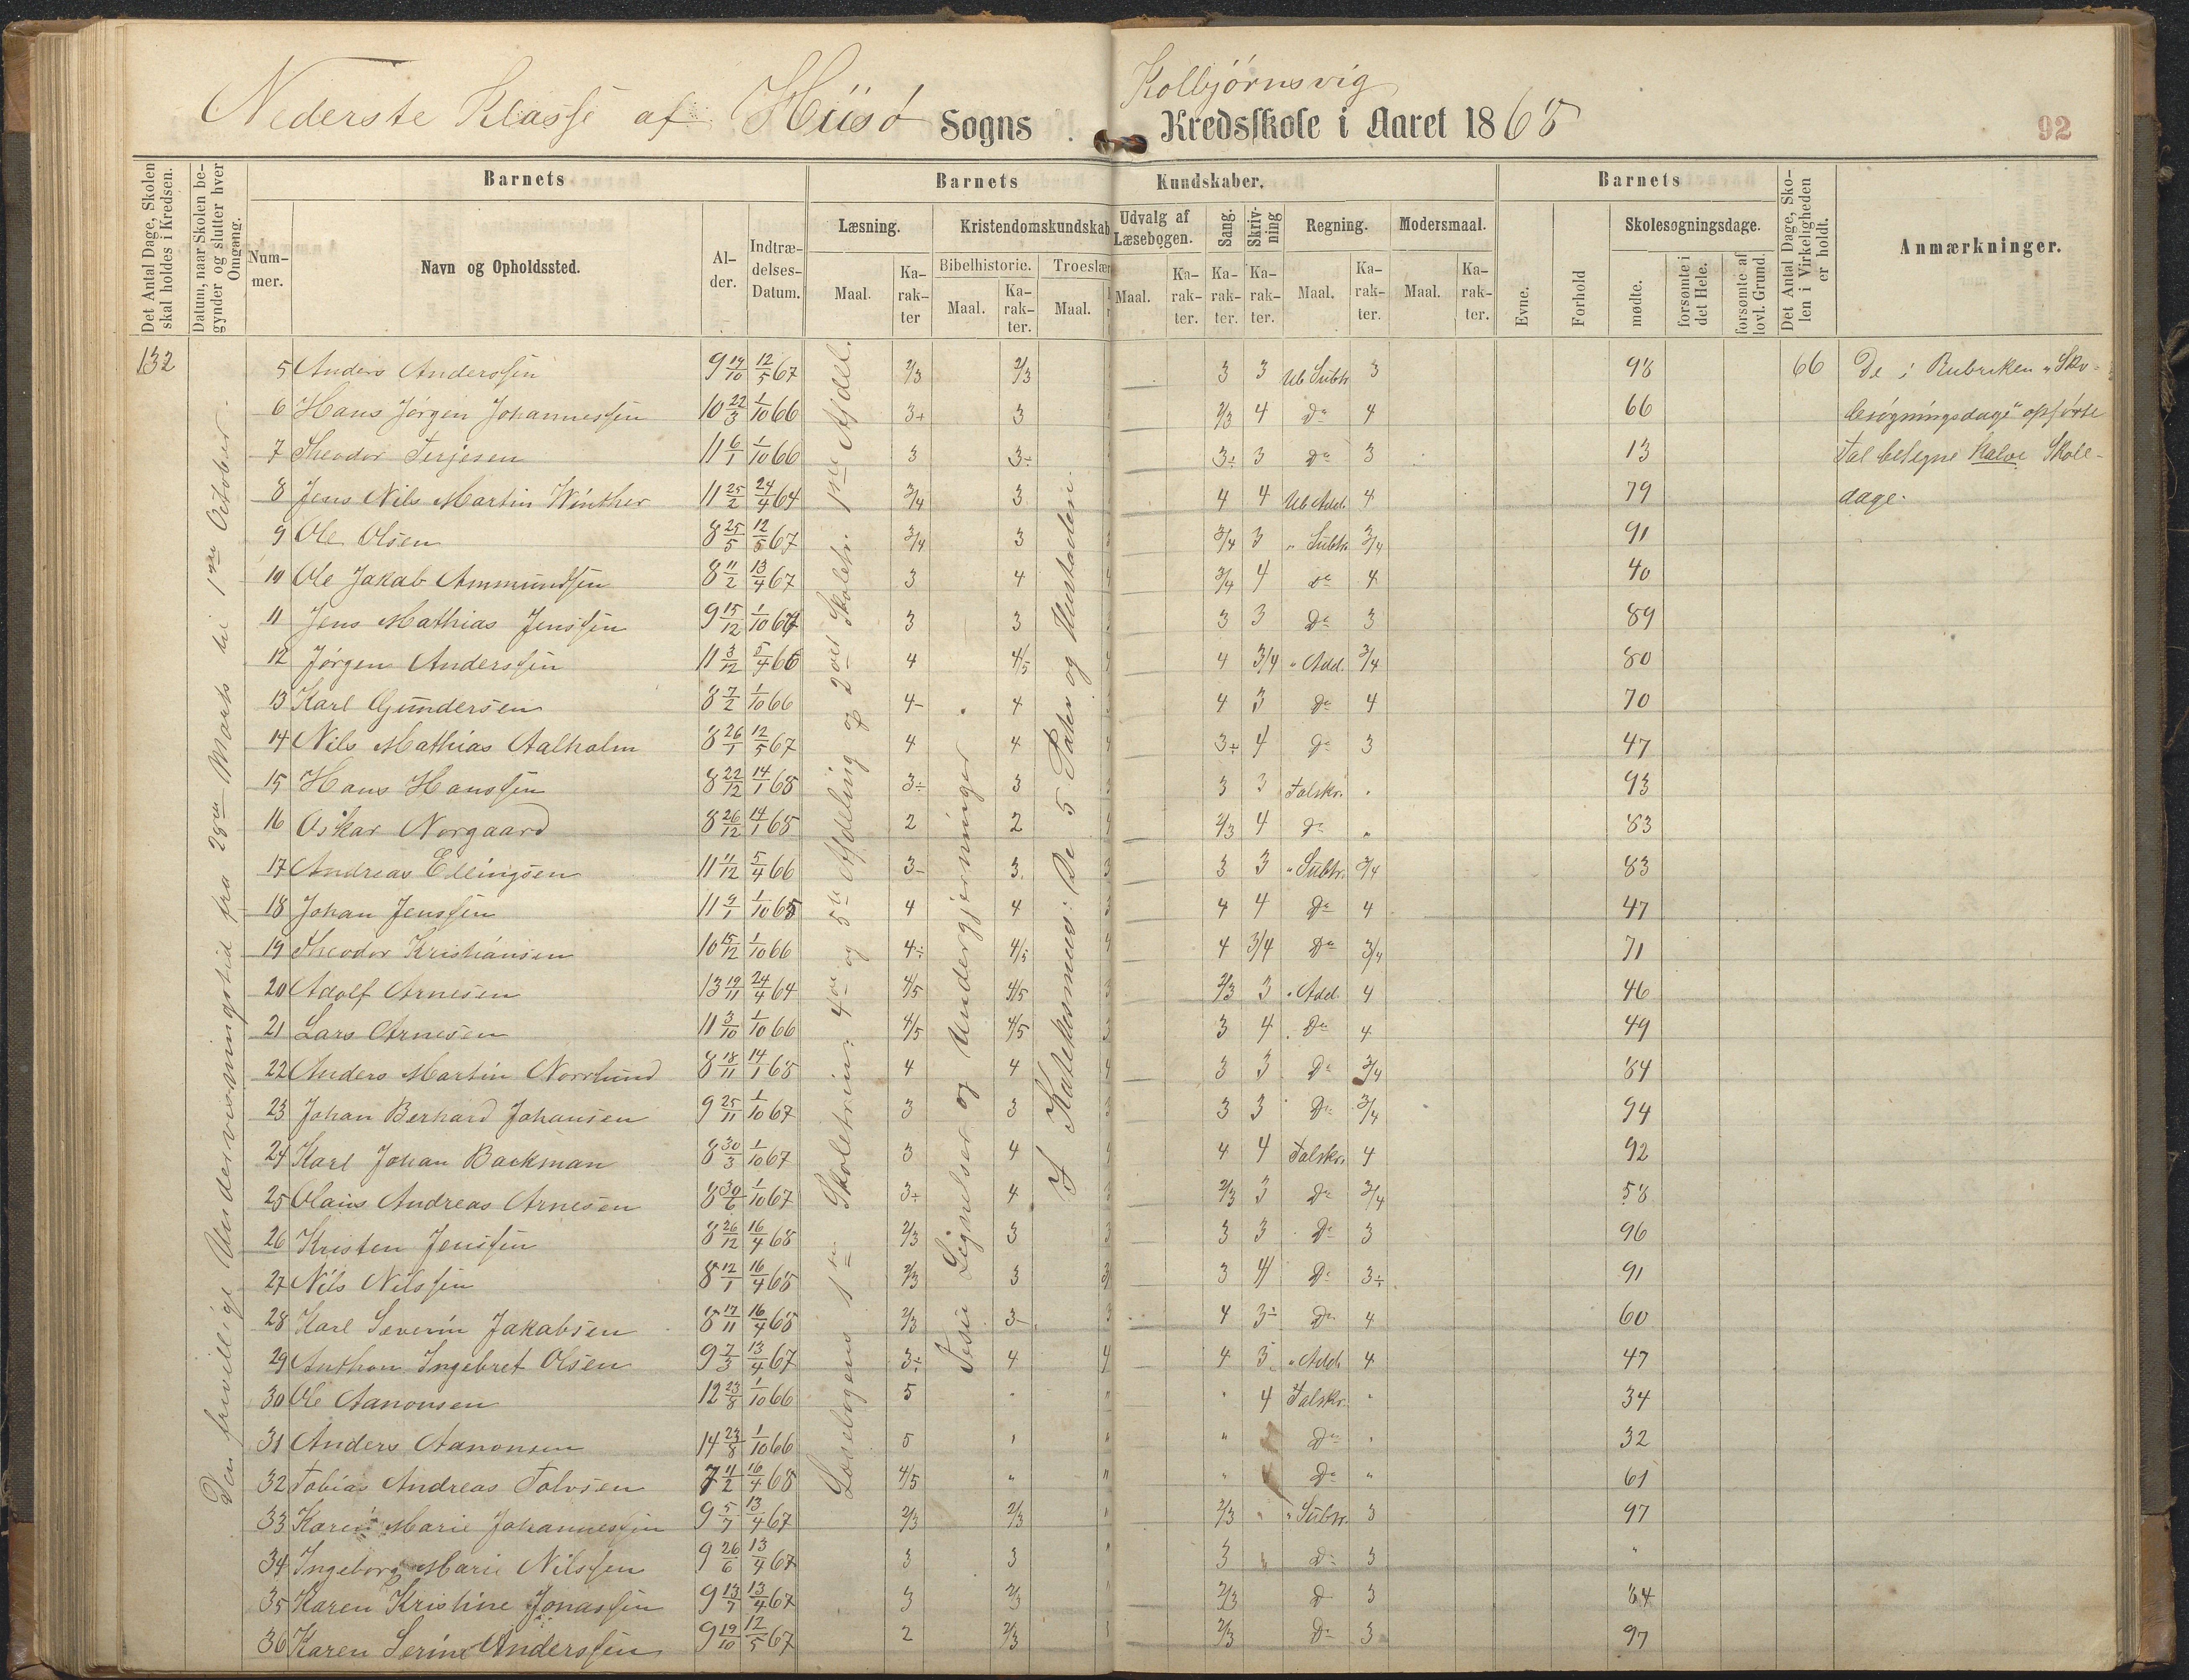 Nederste Klasse af Hiisø Sogns Kolbjørnsvig Kredsskole i Aaret 1868
92
Det Antal Dage, Skolen skal holdes i Kredsen.
Datum, naar Skolen begynder og slutter hver Omgang.
Barnets
Nummer.
Navn og Opholdssted.
Alder.
Indtrædelses-Datum.
Barnets Kundskaber.
Læsning.
Maal.
Karakter
Kristendomskundskab
Bibelhistorie.
Maal.
Karakter.
Troeslær
Maal.
Udvalg af Læsebogen.
Maal.
Karakter.
Sang.
Karakter.
Skrivning
Karakter.
Regning.
Maal.
Karakter.
Modersmaal.
Maal.
Karakter.
Barnets
Evne.
Forhold
Skolesøgningsdage.
mødte.
forsømte i det Hele.
forsømte af lovl. Grund.
Det Antal Dage, Skolen i Virkeligheden er holdt.
Anmærkninger.
132
Den frivillige Undervisningstid fra 28de Marts til 1ste October.
Læsebogens 1ste Skoletrin: 4de og 5te Afdeling og 2det Skoletr. 1ste Afdel.
Jesu Lignelser og Undergjerninger
I Katekesmus: De 5 Parter og Hustavlen.
5 Anders Anderssen 9 19/10 12/5 67 2/3 2/3 3 3 Ub Subtr 3 98 66 De i Rubriken "Sko-
6 Hans Jørgen Johannessen 10 22/3 1/10 66 3+ 3 2/3 4 Do 4 66 lesøgningsdage" opførte
7 Theodor Terjesen 11 6/1 1/10 66 3 3÷ 3÷ 3 Do 3 13 Tal betegne halve Skole-
8 Jens Nils Martin Winther 11 25/2 24/4 64 3/4 3 4 4 Ub Add. 4 79 dage.
9 Ole Olsen 8 25/5 12/5 67 3/4 3 3/4 3 " Subtr. 3/4 91
10 Ole Jakob Ammundsen 8 11/2 13/4 67 3 4 3/4 4 Do 4 40
11 Jens Mathias Jenssen 9 15/12 1/10 67 3 3 3 3 Do 3 89
12 Jørgen Anderssen 11 3/12 5/4 66 4 4/5 4 3/4 " Add. 3/4 80
13 Karl Gundersen 8 7/2 1/10 66 4- 4 4 3 Do 4 70
14 Nils Mathias Aalholm 8 26/1 12/5 67 4 4 3÷ 4 Do 3 47
15 Hans Hanssen 8 22/12 14/1 68 3÷ 3 3 3 Talskr. " 93
16 Oskar Norgaard 8 26/12 14/1 68 2 2 2/3 4 Do " 83
17 Andreas Ellingsen 11 11/12 5/4 66 3- 3 3 3 " Subtr. 3/4 83
18 Johan Jenssen 11 9/1 1/10 65 4 4 4 4 Do 4 47
19 Theodor Kristiansen 10 15/12 1/10 66 4÷ 4/5 4 3/4 Do 3/4 71
20 Adolf Arnesen 13 19/11 24/4 64 4/5 4/5 2/3 3 " Add. 4 46
21 Lars Arnesen 11 3/10 1/10 66 4/5 4/5 3 4 Do 4 49
22 Anders Martin Norrlund 8 18/11 14/1 68 4 4 3 3 Do 3/4 84
23 Johan Berhard Johansen 9 25/11 1/10 67 3 3 3 3 Do 3/4 94
24 Karl Johan Backman 8 30/3 1/10 67 3 4 4 4 Talskr. 4 92
25 Olaus Andreas Arnesen 8 30/6 1/10 67 3÷ 4 2/3 3 Do 3/4 58
26 Kristen Jenssen 8 26/12 16/4 68 2/3 3 3 3 Do 3 96
27 Nils Nilssen 8 12/1 16/4 68 2/3 3 3 4 Do 3÷ 91
28 Karl Severin Jakobsen 8 17/11 16/4 68 2/3 3- 4 3÷ Do 4 60
29 Anthon Ingebret Olsen 9 7/3 13/4 67 3÷ 4 4 3 " Add. 4 47
30 Ole Aanonsen 12 23/8 1/10 66 5 " " 4 Talskr. " 34
31 Anders Aanonsen 14 23/8 1/10 66 5 " " Do " 32
32 Tobias Andreas Tolvsen 7 11/2 16/4 68 4/5 " " Do " 61
33 Karen Marie Johannessen 9 5/7 13/4 67 2/3 2/3 2/3 " " Subtr. 3 97
34 Ingeborg Marie Nilssen 9 26/6 13/4 67 3 3 3 Do 3 "
35 Karen Kristine Jonassen 9 13/7 13/4 67 3 2/3 2/3 D 3 84
36 Karen Serine Anderssen 9 19/10 12/5 67 2 2/3 2/3 Do 3 97